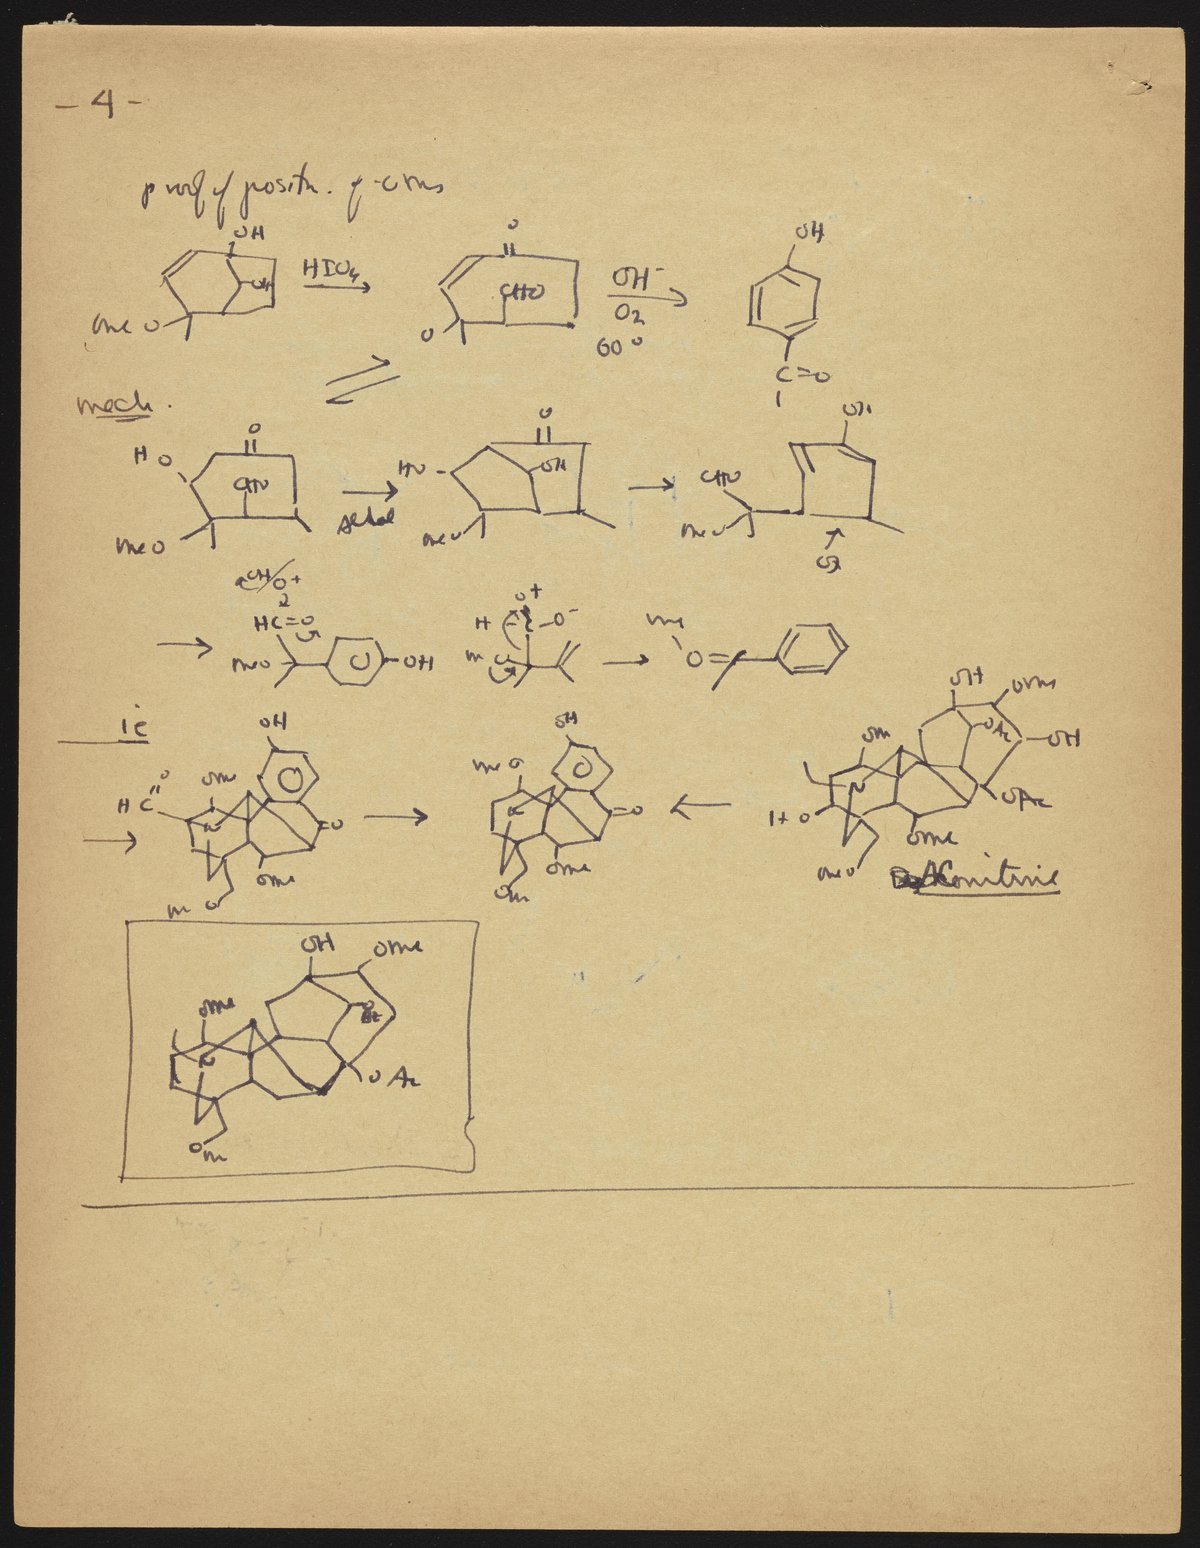 - 4 -
proof of positn. of -OMe
OH
OH
HIO4
OMe
O
CHO
O
OH-
O2
60°
OH
C=O
mech.
HO
O
CHO
MeO
aldol
O
HO
OH
MeO
OH
CHO
MeO
HC=O
MeO
OH
O+
H
O-
Me
O=
ie
OH
OMe
HC
O
O
OMe
OH
MeO
O
OMe
OM
OH
OMe
OAc
OH
OM
N
OAc
HO
OMe
MeO
Aconitine
OH
OMe
OMe
OAc
N
OM